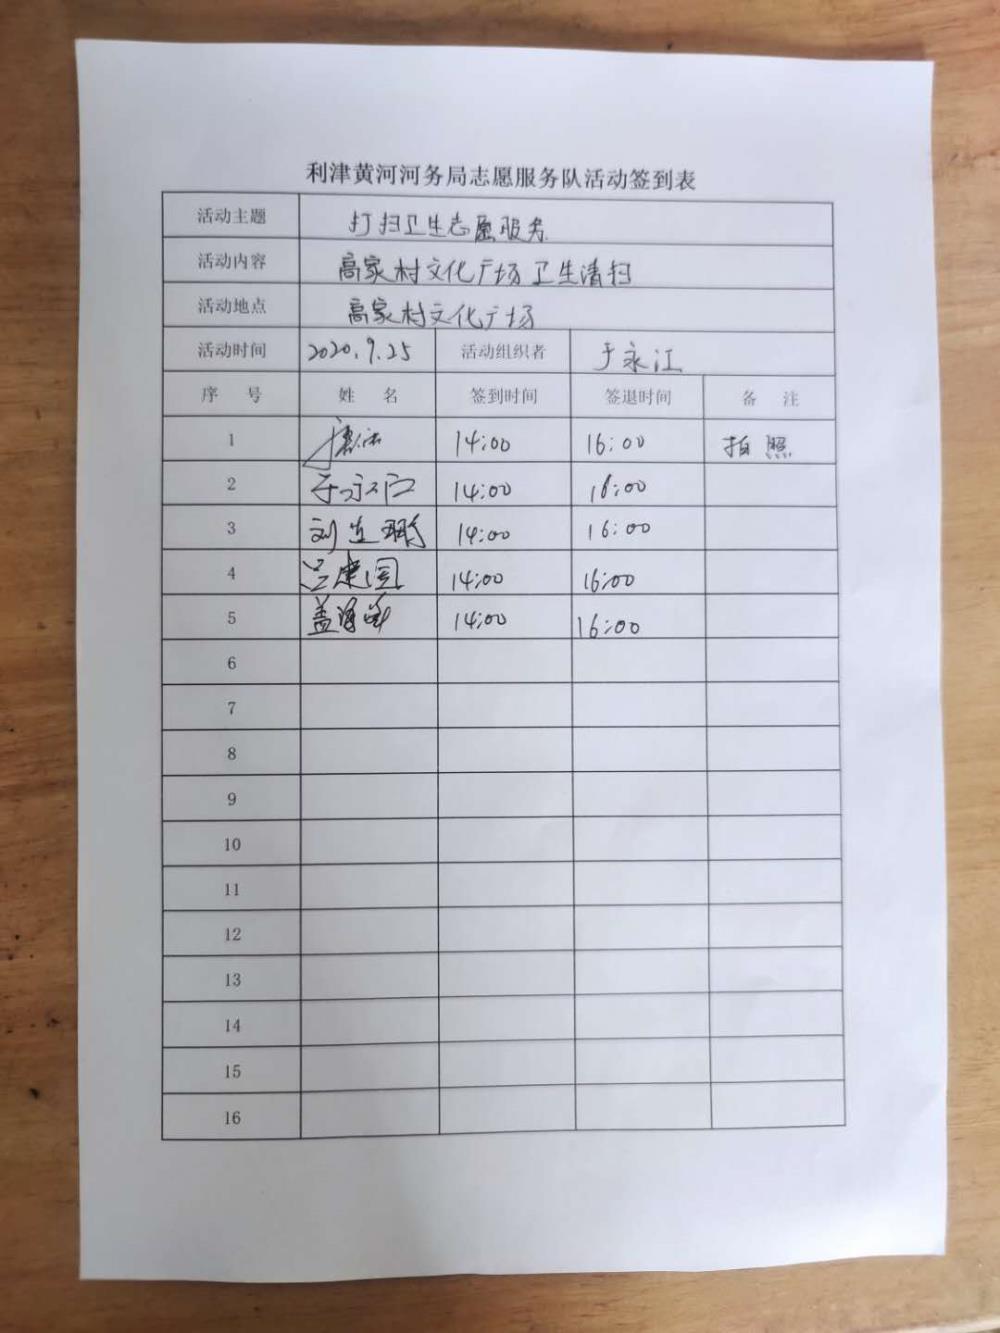 利津黄河河务局志愿服务队活动签到表
活动主题 打扫卫生志愿服务
活动内容 高家村文化广场卫生清扫
活动地点 高家村文化广场
活动时间 2020.9.25 活动组织者 于永江
序 号 姓 名 签到时间 签退时间 备 注
1 14:00 16:00 拍照
2 于永江 14:00 16:00
3 刘连鹏 14:00 16:00
4 吕建国 14:00 16:00
5 盖 14:00 16:00
6
7
8
9
10
11
12
13
14
15
16